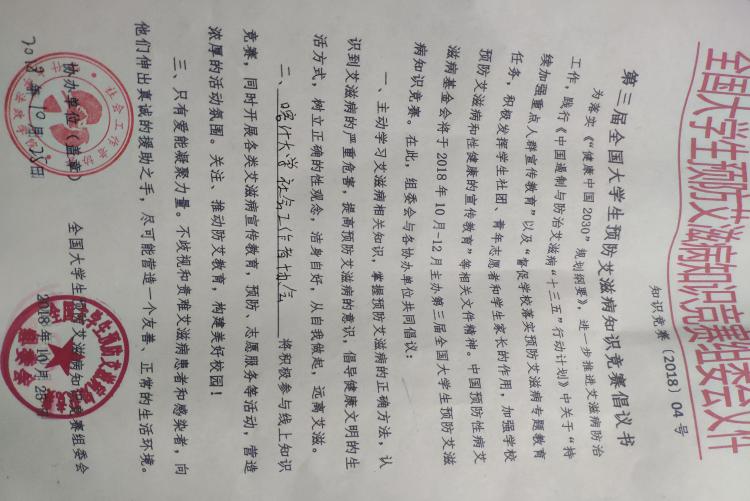 全国大学生预防艾滋病知识竞赛组委会文件
知识竞赛（2018）04 号
第三届全国大学生预防艾滋病知识竞赛倡议书
为落实《“健康中国 2030”规划纲要》，进一步推进艾滋病防治
工作，践行《中国遏制与防治艾滋病“十三五”行动计划》中关于“持
续加强重点人群宣传教育”以及“督促学校落实预防艾滋病专题教育
任务，积极发挥学生社团、青年志愿者和学生家长的作用，加强学校
预防艾滋病和性健康的宣传教育”等相关文件精神。中国预防性病艾
滋病基金会将于 2018 年 10 月-12 月主办第三届全国大学生预防艾滋
病知识竞赛。在此，组委会与各协办单位共同倡议：
一、主动学习艾滋病相关知识，掌握预防艾滋病的正确方法，认
识到艾滋病的严重危害，提高预防艾滋病的意识，倡导健康文明的生
活方式，树立正确的性观念，洁身自好，从自我做起，远离艾滋。
二、喀什大学社会工作者协会 将积极参与线上知识
竞赛，同时开展各类艾滋病宣传教育，预防、志愿服务等活动，营造
浓厚的活动氛围。关注、推动防艾教育，构建美好校园！
三、只有爱能凝聚力量。不歧视和责难艾滋病患者和感染者，向
他们伸出真诚的援助之手，尽可能营造一个友善、正常的生活环境。
协办单位（盖章） 全国大学生预防艾滋病知识竞赛组委会
2018年10月25日 2018年10月
组委会